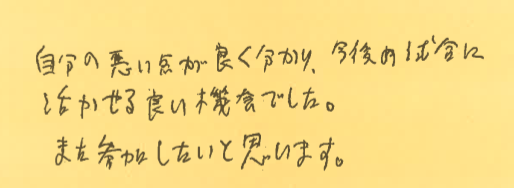 自分の悪い点が良く分かり、今後の試合に
活かせる良い機会でした。
また参加したいと思います。